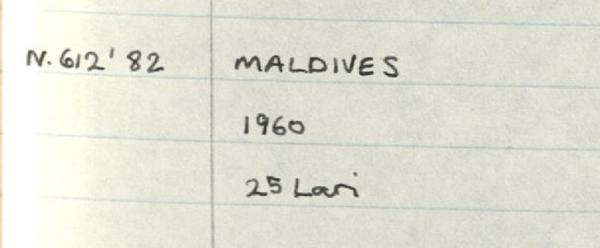 N.612'82 MALDIVES
1960
25 Lari